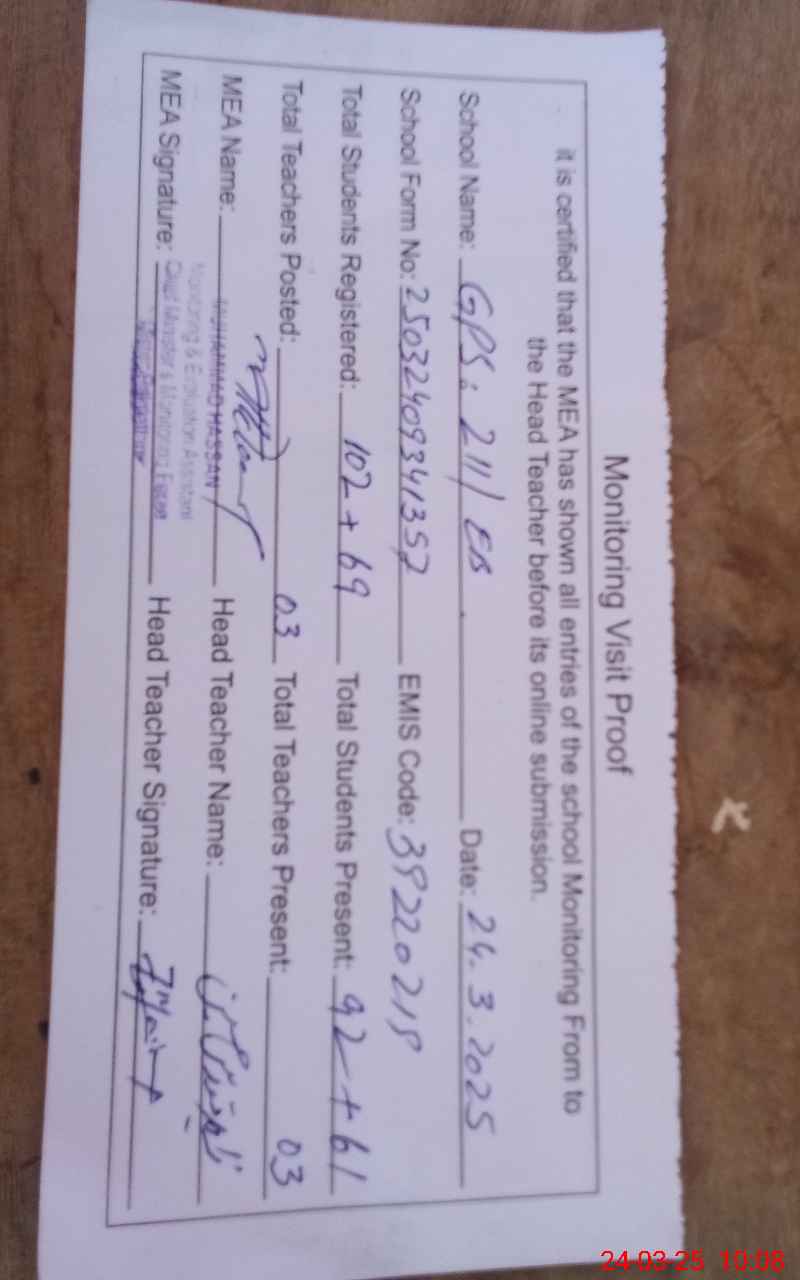 Monitoring Visit Proof
it is certified that the MEA has shown all entries of the school Monitoring From to
the Head Teacher before its online submission.
School Name: GPS. 211/EB Date: 24.3.2025
School Form No: 25032409341357 EMIS Code: 39220218
Total Students Registered: 102 + 69 Total Students Present: 92 + 61
Total Teachers Posted: 03 Total Teachers Present: 03
MEA Name: MUHAMMAD HASSAN Head Teacher Name:
Monitoring & Evaluation Assistant
MEA Signature: Chief Minister's Monitoring Force Head Teacher Signature:
24-03-25 10:08